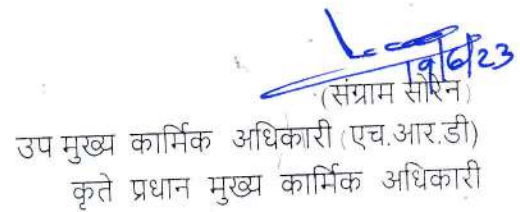 19/6/23
(संग्राम सोरेन)
उप मुख्य कार्मिक अधिकारी (एच.आर.डी)
कृते प्रधान मुख्य कार्मिक अधिकारी